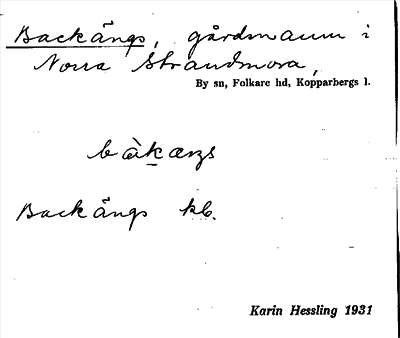 Backängs, gårdnamn i
Norra Strandmora,
By sn, Folkare hd, Kopparbergs l.
bàkæŋs
Backängs kb.
Karin Hessling 1931